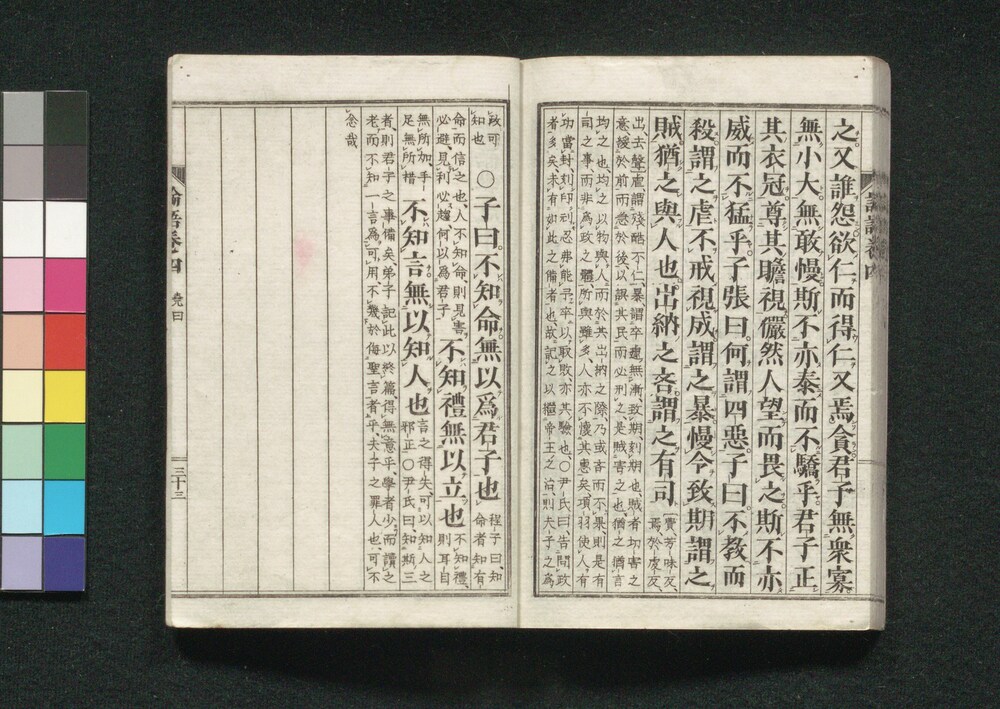 之又誰怨欲仁而得仁又焉貪君子無衆寡
無小大無敢慢斯不亦泰而不驕乎君子正
其衣冠尊其瞻視儼然人望而畏之斯不亦
威而不猛乎子張曰何謂四惡子曰不教而
殺謂之虐不戒視成謂之暴慢令致期謂之
賊猶之與人也出納之吝謂之有司
芳味反
焉於虔反
出去聲虐謂殘酷不仁暴謂卒遽無漸致期刻期也賊者切害之
意緩於前而急於後以誤其民而必刑之是賊害之也猶之猶言
均之也均之以物與人而於其出納之際乃或吝而不果則是有
司之事而非為政之體所與雖多人亦不懷其惠矣項羽使人有
功當封刻印刓忍弗能予卒以取敗亦其驗也○尹氏曰告問政
者多矣未有如此之備者也故記之以繼帝王之治則夫子之為
政可
知也
○子曰不知命無以爲君子也
程子曰知
命者知有
命而信之也人不知命則見害
必避見利必趨何以爲君子
不知禮無以立也
不知禮
則耳目
無所加手
足無所措
不知言無以知人也
言之得失可以知人之
邪正○尹氏曰知斯三
者則君子之事備矣弟子記此以終篇得無意乎學者少而讀之
老而不知一言爲可用不幾於侮聖言者乎夫子之罪人也可不
念哉
論語卷四 堯曰 三十三